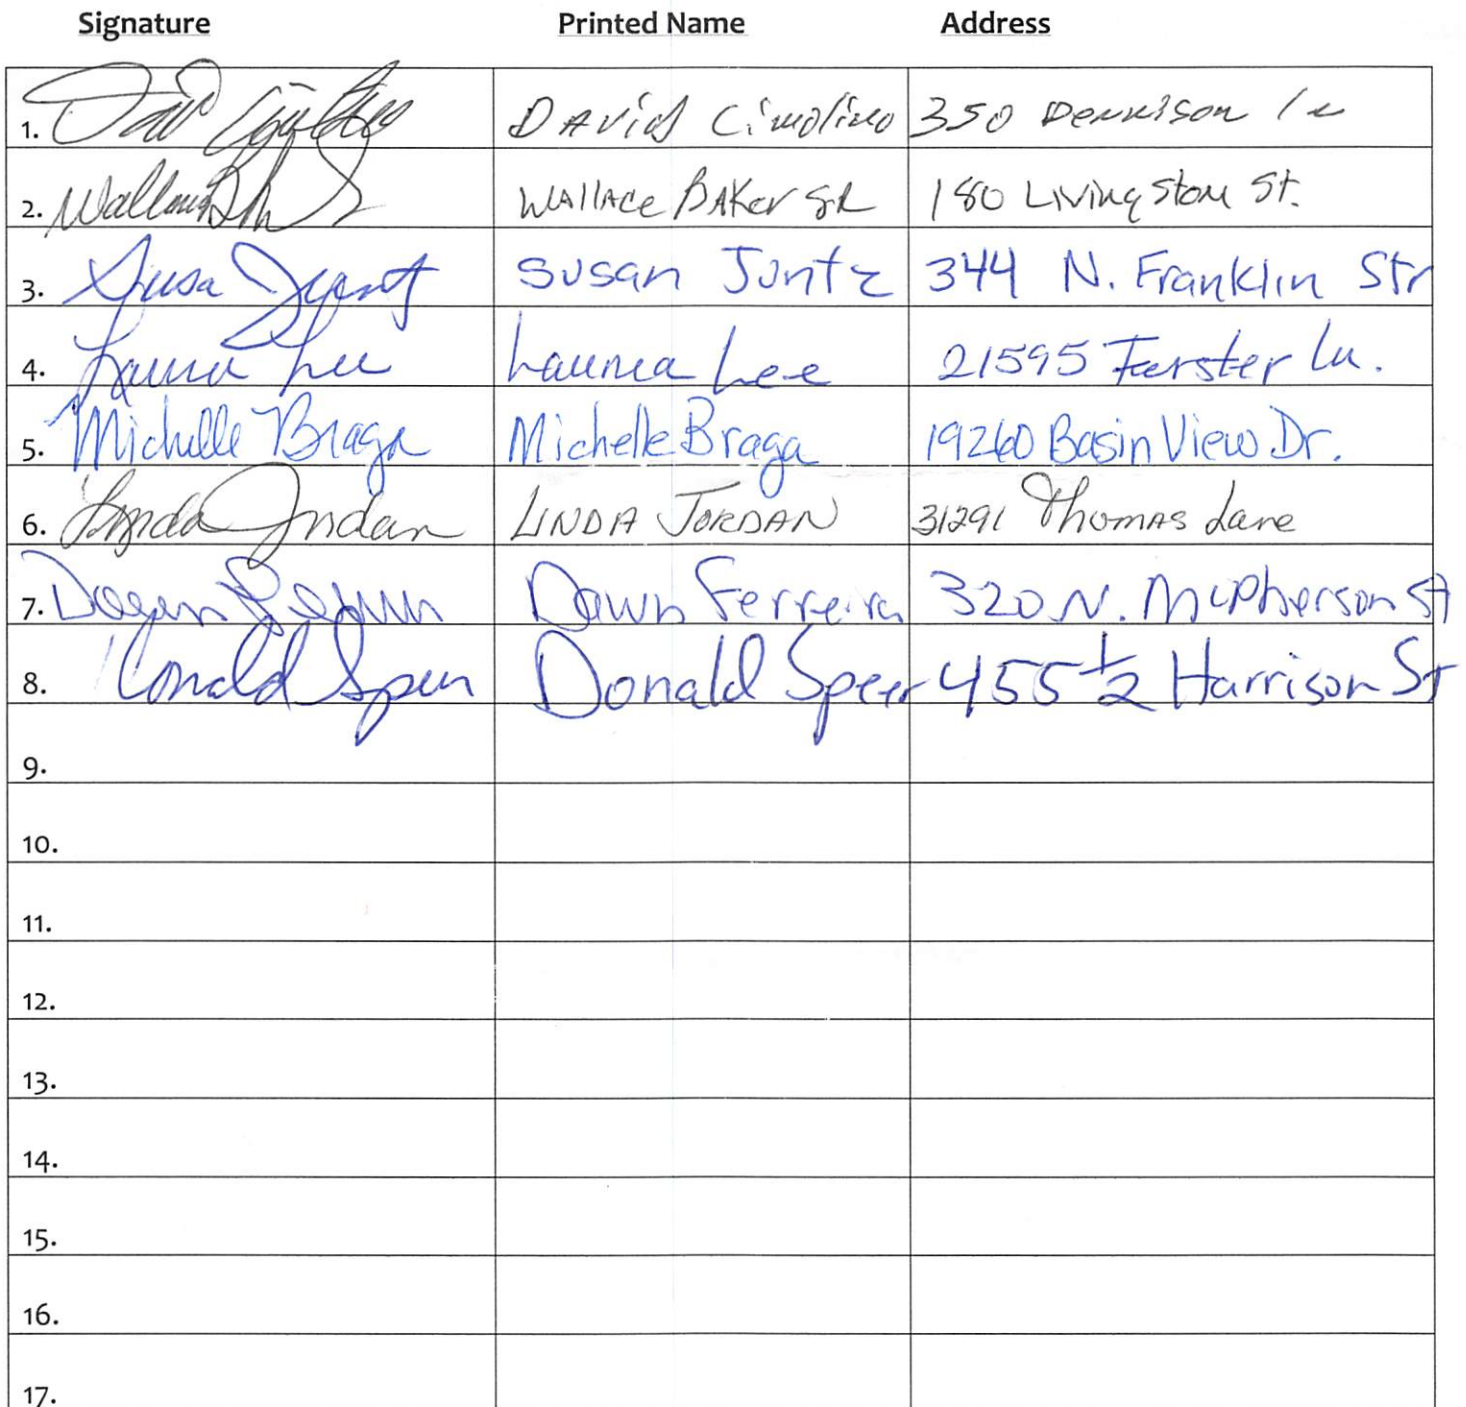 Signature Printed Name Address
1. David Cimolino 350 Dennison Ln
2. Wallace BAKer SR 180 Livingstone St.
3. Susan Juntz 344 N. Franklin Str
4. Launa Lee Launa Lee 21595 Foerster Ln.
5. Michelle Braga Michelle Braga 19260 Basin View Dr.
6. Lynda Jordan LINDA JORDAN 31291 Thomas Lane
7. Dawn Ferreira 320 N. McPherson St
8. Donald Speer Donald Speer 455 1/2 Harrison St
9.
10.
11.
12.
13.
14.
15.
16.
17.